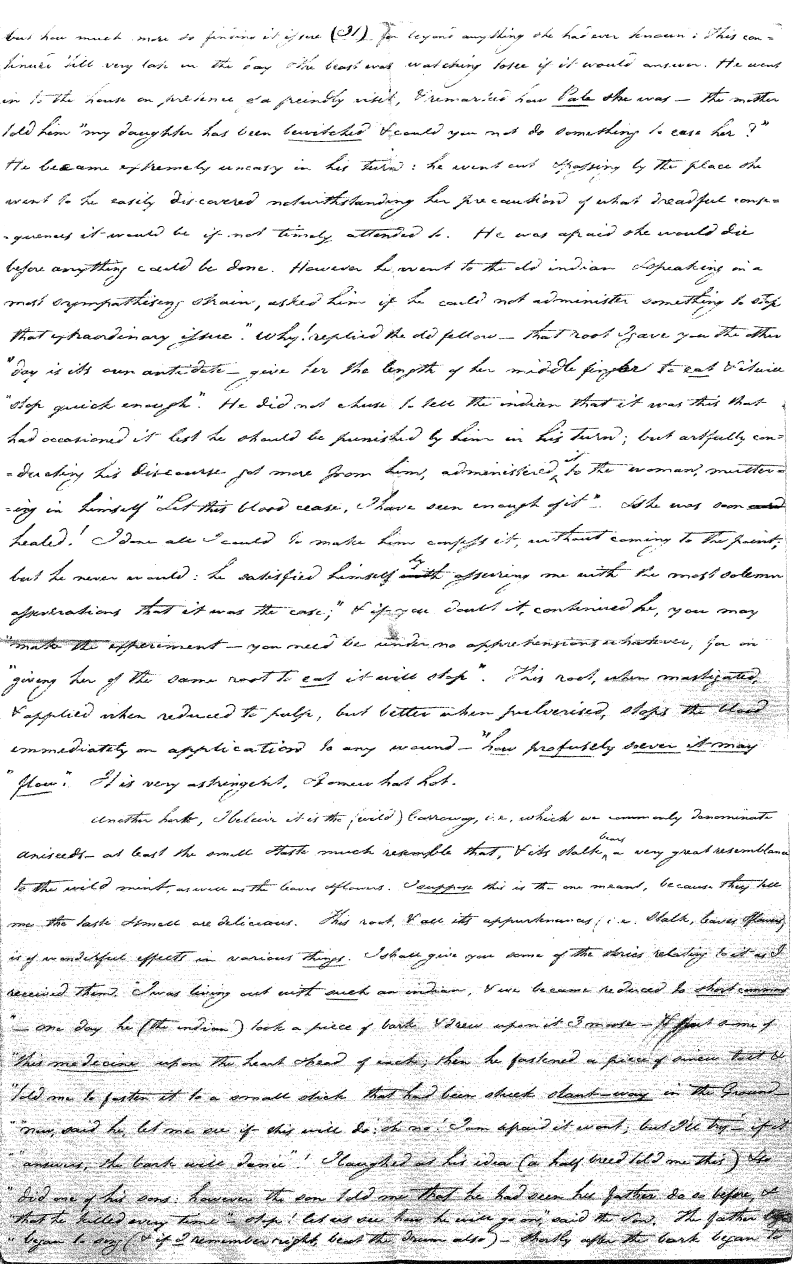 but how much more so finding it issue (31) far beyond anything she had ever known: this con=
tinued 'till very late in the day & the beast was watching to see if it would answer. He went
in to the house on pretence of a freindly visit, & remarked how Pale she was — the mother
told him "my daughter has been bewitched & could you not do something to ease her?"
He became extremely uneasy in his turn: he went out & passing by the place she
went to he easily discovered notwithstanding her precaution of what dreadful conse=
=quences it would be if not timely attended to. He was afraid she would die
before anything could be done. However he went to the old indian & speaking in a
most sympathising strain, asked him if he could not administer something to stop
that extraordinary issue". Why! replied the old fellow — that root I gave you the other
"day is its own antidote — give her the length of her middle finger to eat & it will
"stop quick enough". He did not chuse to tell the indian that it was this that
had occasioned it lest he should be punished by him in his turn; but artfully con=
=ducting his discourse got more from him, administered of to the woman, mutter=
=ing in himself "Let this blood cease, I have seen enough of it" — & she was soon
healed! I done all I could to make him confess it, without coming to the point;
but he never would: he satisfied himself by assuring me with the most solemn
asseverations that it was the case; "& if you doubt it, continued he, you may
"make the experiment — you need be under no apprehensions whatever, for on
"giving her of the same root to eat it will stop". This root, when mastigated,
& applied when reduced to pulp, but better when pulverised, stops the blood
immediately on application to any wound — "how profusely soever it may
"flow". It is very astringent, & somewhat hot.
Another herb, I beleive it is the (wild) Carroway, i.e. which we commonly denominate
aniseeds — at least the smell & taste much resemble that, & its stalk bears a very great resemblance
to the wild mint, as well as the leaves & flowers. I suppose this is the one meant, because they tell
me the taste & smell are delicious. This root, & all its appurtenances, i.e. Stalk, leaves & flowers,
is of wonderful effects in various things. I shall give you some of the stories relating to it as I
received them. "I was living out with such an indian, & we became reduced to short commons
"— one day he (the indian) took a piece of bark & drew upon it 3 moose — & put some of
"this medicine upon the heart & head of each; then he fastened a piece of sinew to it &
"told me to fasten it to a small stick that had been stuck slant-way in the Ground —
"now, said he, let me see if this will do: oh no! I am afraid it wont; but I'll try — if it
"answers, the bark will dance"! I laughed at his idea (a half breed told me this) & so
"did one of his sons: however the son told me that he had seen his father do so before, &
that he killed every time" — stop! let us see how he will go on," said the Son. The father
"began to sing (& if I remember right, beat the drum also) — shortly after the bark began to